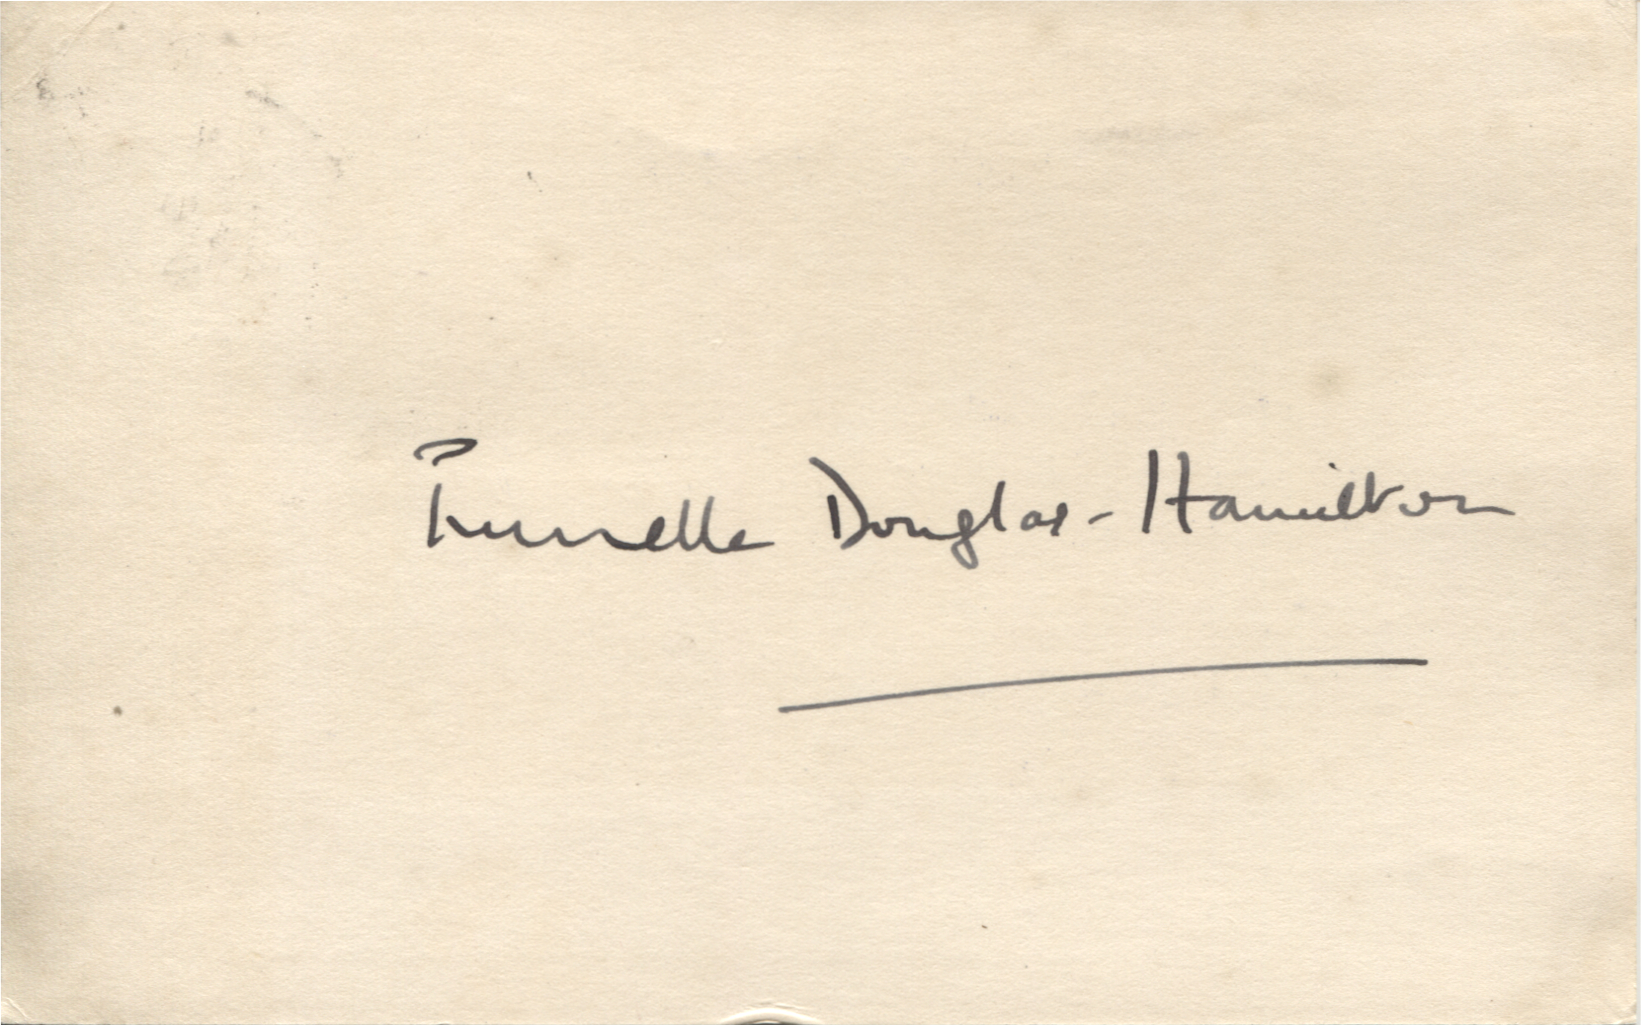 Prunella Douglas-Hamilton